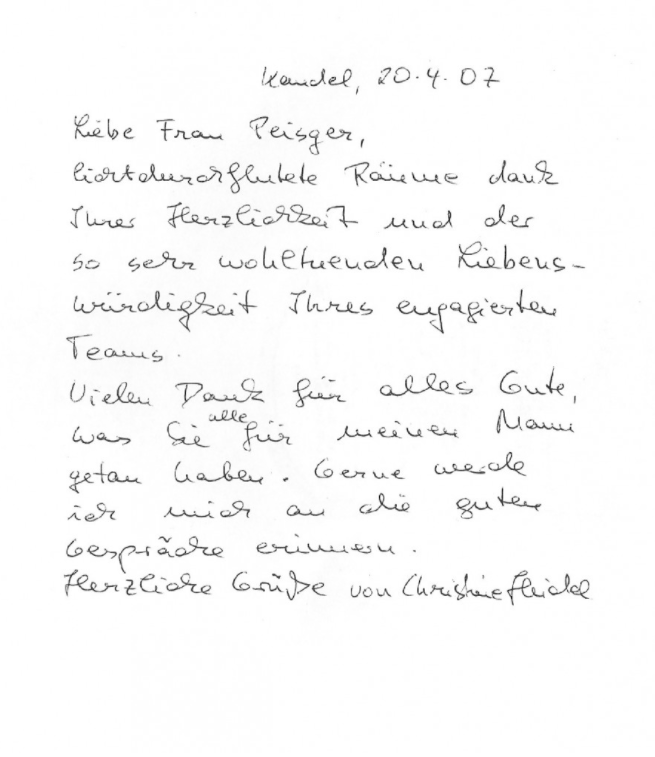 Kandel, 20.4.07
Liebe Frau Peisger,
lichtdurchflutete Räume dank
Ihrer Herzlichkeit und der
so sehr wohltuenden Liebens-
würdigkeit Ihres engagierten
Teams.
Vielen Dank für alles Gute,
was Sie alle für meinen Mann
getan haben. Gerne werde
ich mich an die guten
Gespräche erinnern.
Herzliche Grüße von Christine